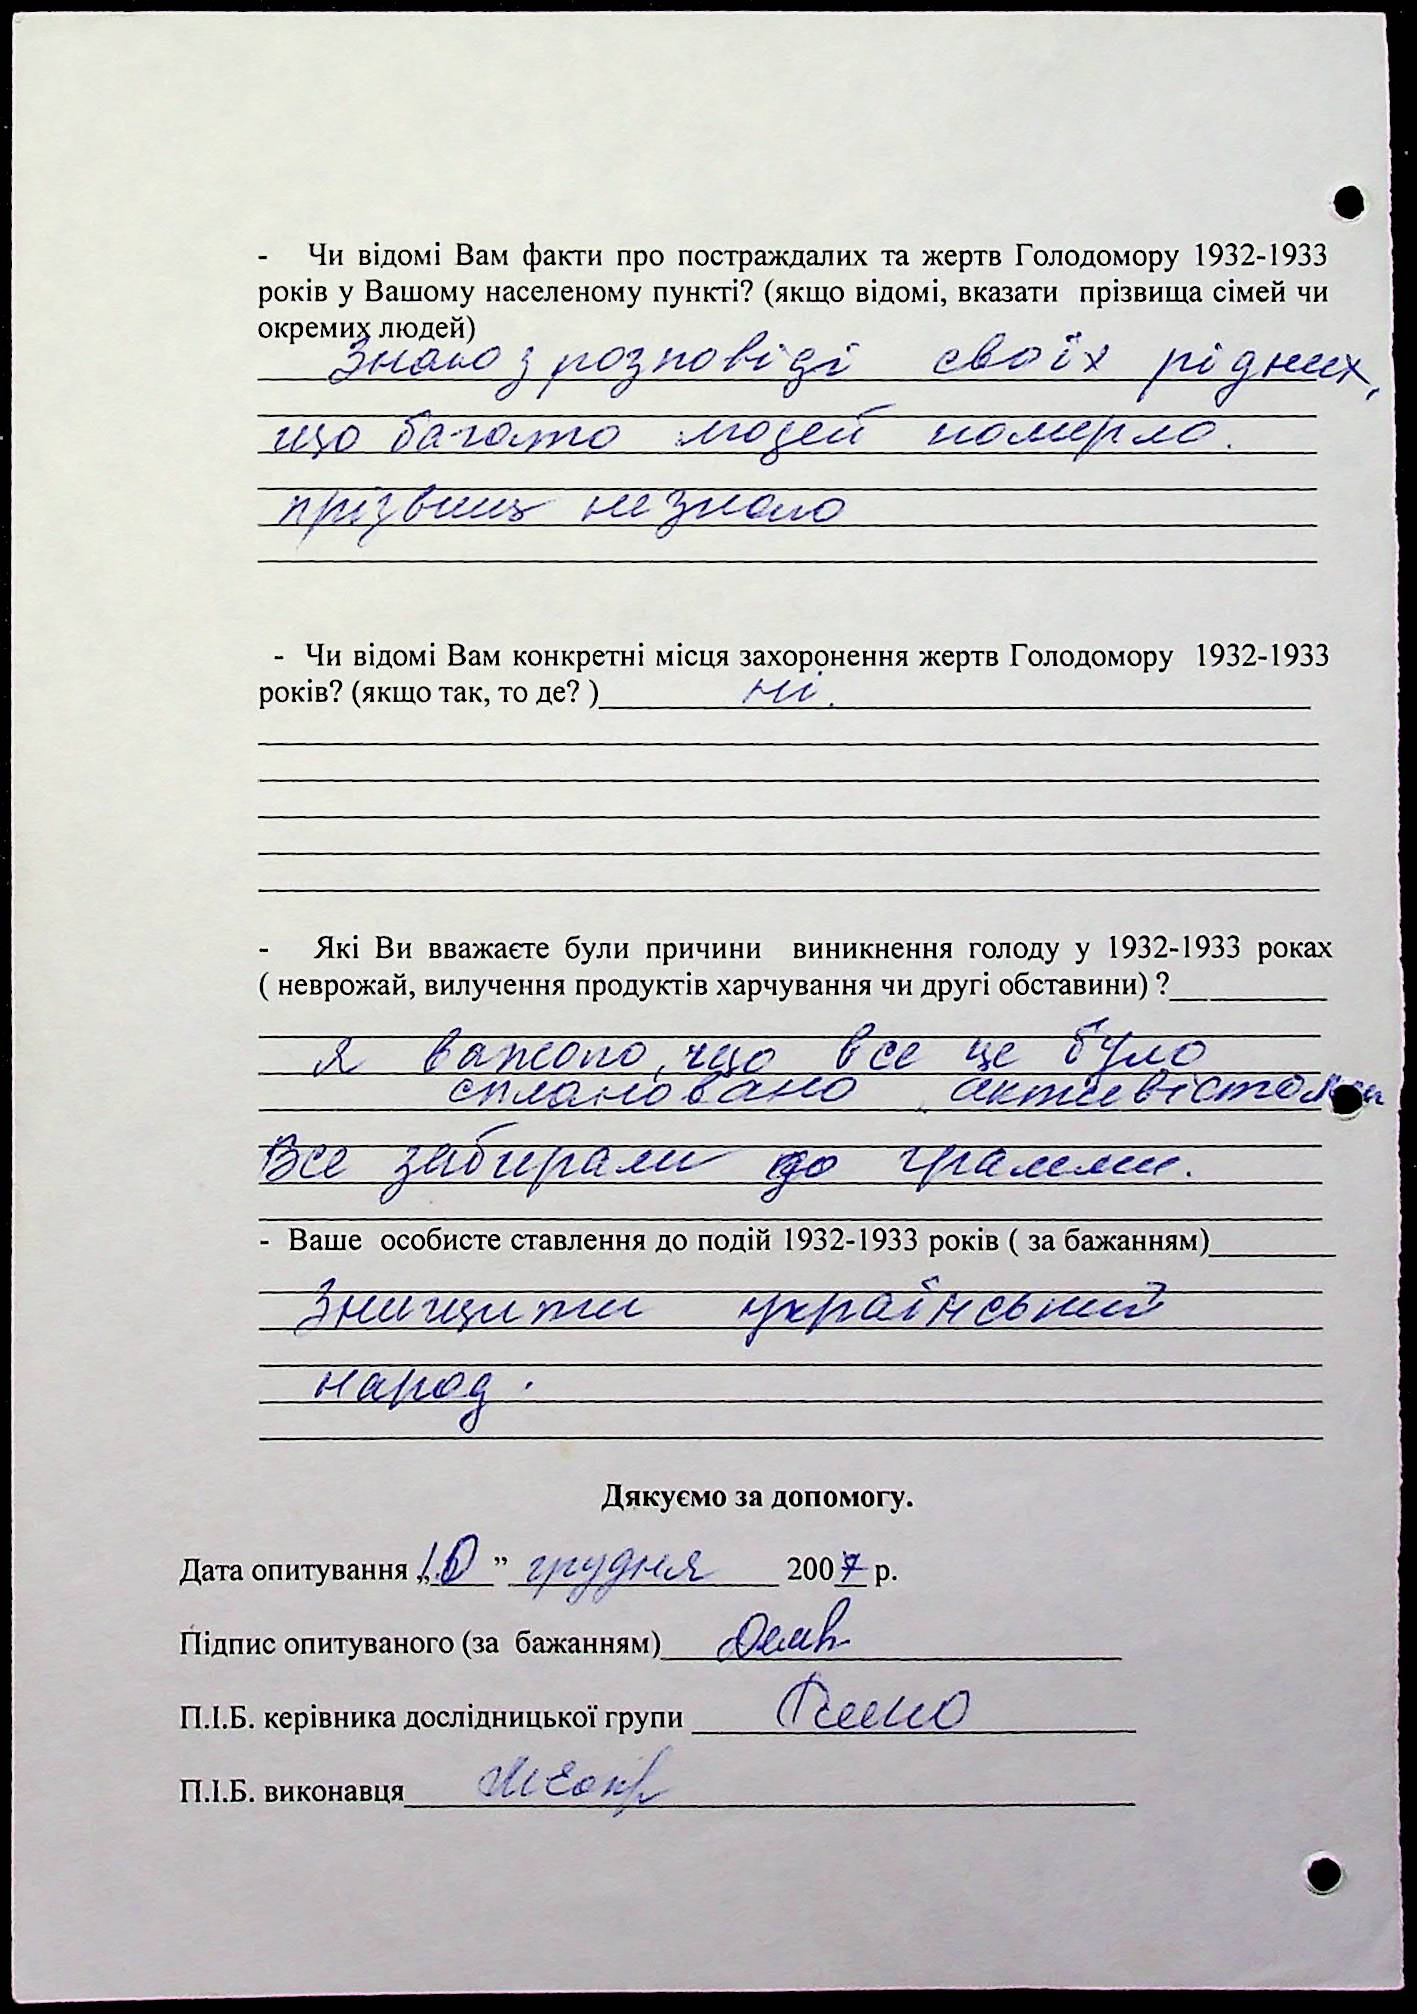 - Чи відомі Вам факти про постраждалих та жертв Голодомору 1932-1933
років у Вашому населеному пункті? (якщо відомі, вказати прізвища сімей чи
окремих людей)
Знаю з розповіді своїх рідних,
що багато людей померло.
прізвищ не знаю
- Чи відомі Вам конкретні місця захоронення жертв Голодомору 1932-1933
років? (якщо так, то де? ) ні.
- Які Ви вважаєте були причини виникнення голоду у 1932-1933 роках
( неврожай, вилучення продуктів харчування чи другі обставини) ?
Я важаю, що все це було
сплановано активістами
Все забирали до грамми.
- Ваше особисте ставлення до подій 1932-1933 років ( за бажанням)
Знищити український
народ.
Дякуємо за допомогу.
Дата опитування „10” грудня 2007 р.
Підпис опитуваного (за бажанням)
П.І.Б. керівника дослідницької групи
П.І.Б. виконавця